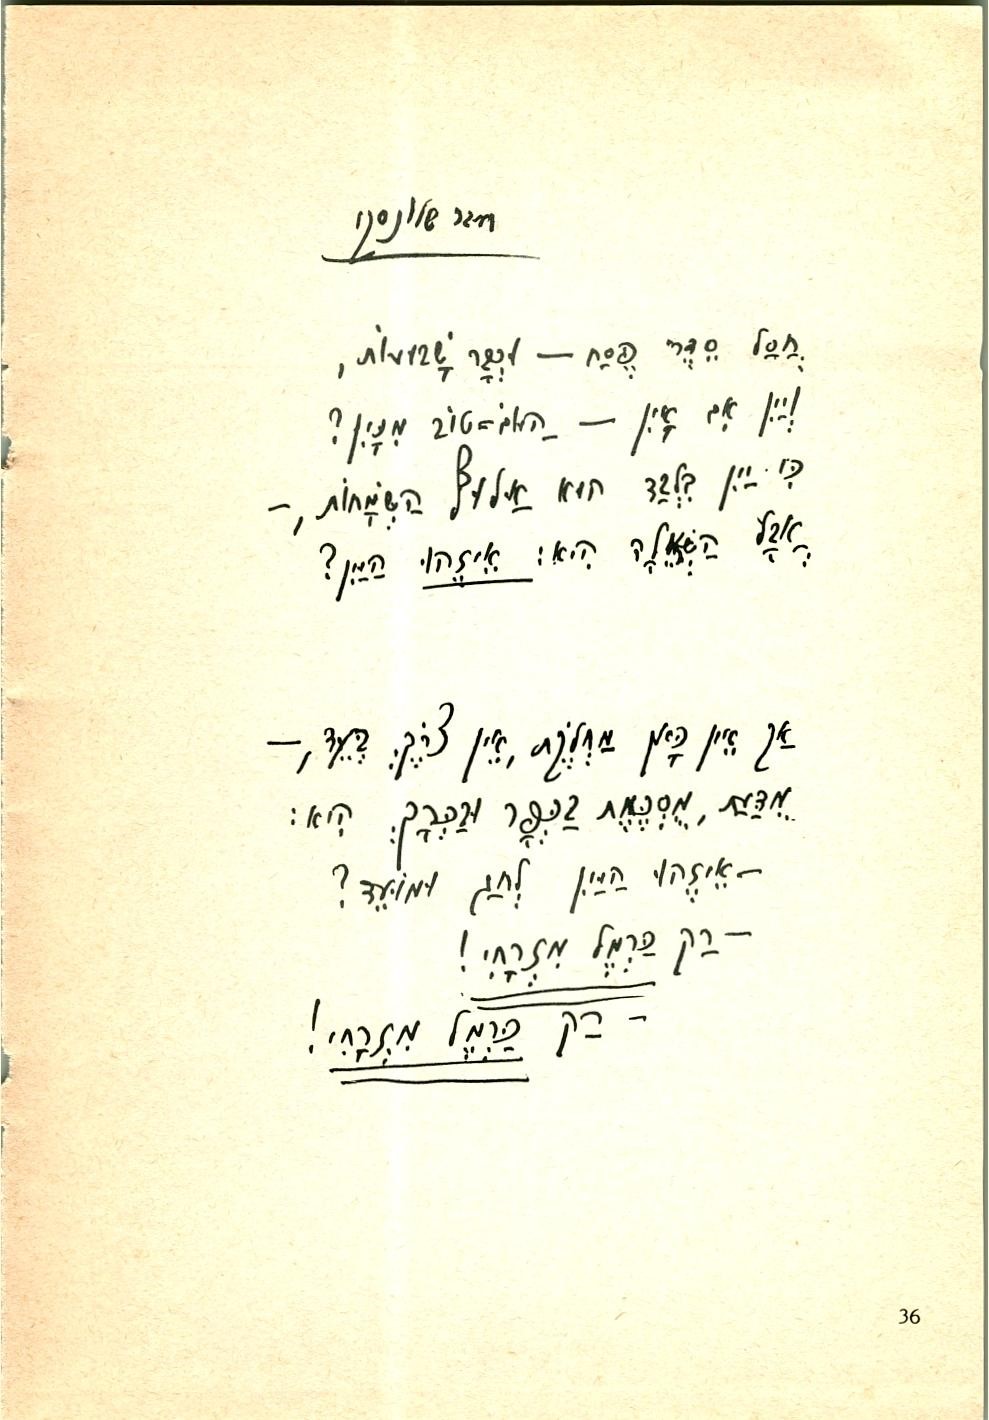 שלונסקי
חֲסַל סִדְרֵי פֶּסַח — וּכְבָר שָׁבוּעוֹת,
וְיַיִן אִם אָיִן — הַיּוֹם=טוֹב מִנָּיִן?
כִּי יַיִן בִּלְבַד הוּא הַשְּׂמָחוֹת, –
אֲבָל הַשְּׁאֵלָה הִיא: אֵיזֶהוּ הַיַּיִן?
אַךְ אֵין כָּאן מַחְלֹקֶת, אֵין צֹרֶךְ בְּעֵד, —
מֻדַּעַת, מֻסְכֶּמֶת בַּכְּפָר וּבַכְּרָךְ הִיא:
— אֵיזֶהוּ הַיַּיִן לְחַג וּמוֹעֵד?
— רַק כַּרְמֶל מִזְרָחִי!
– רַק כַּרְמֶל מִזְרָחִי!
36